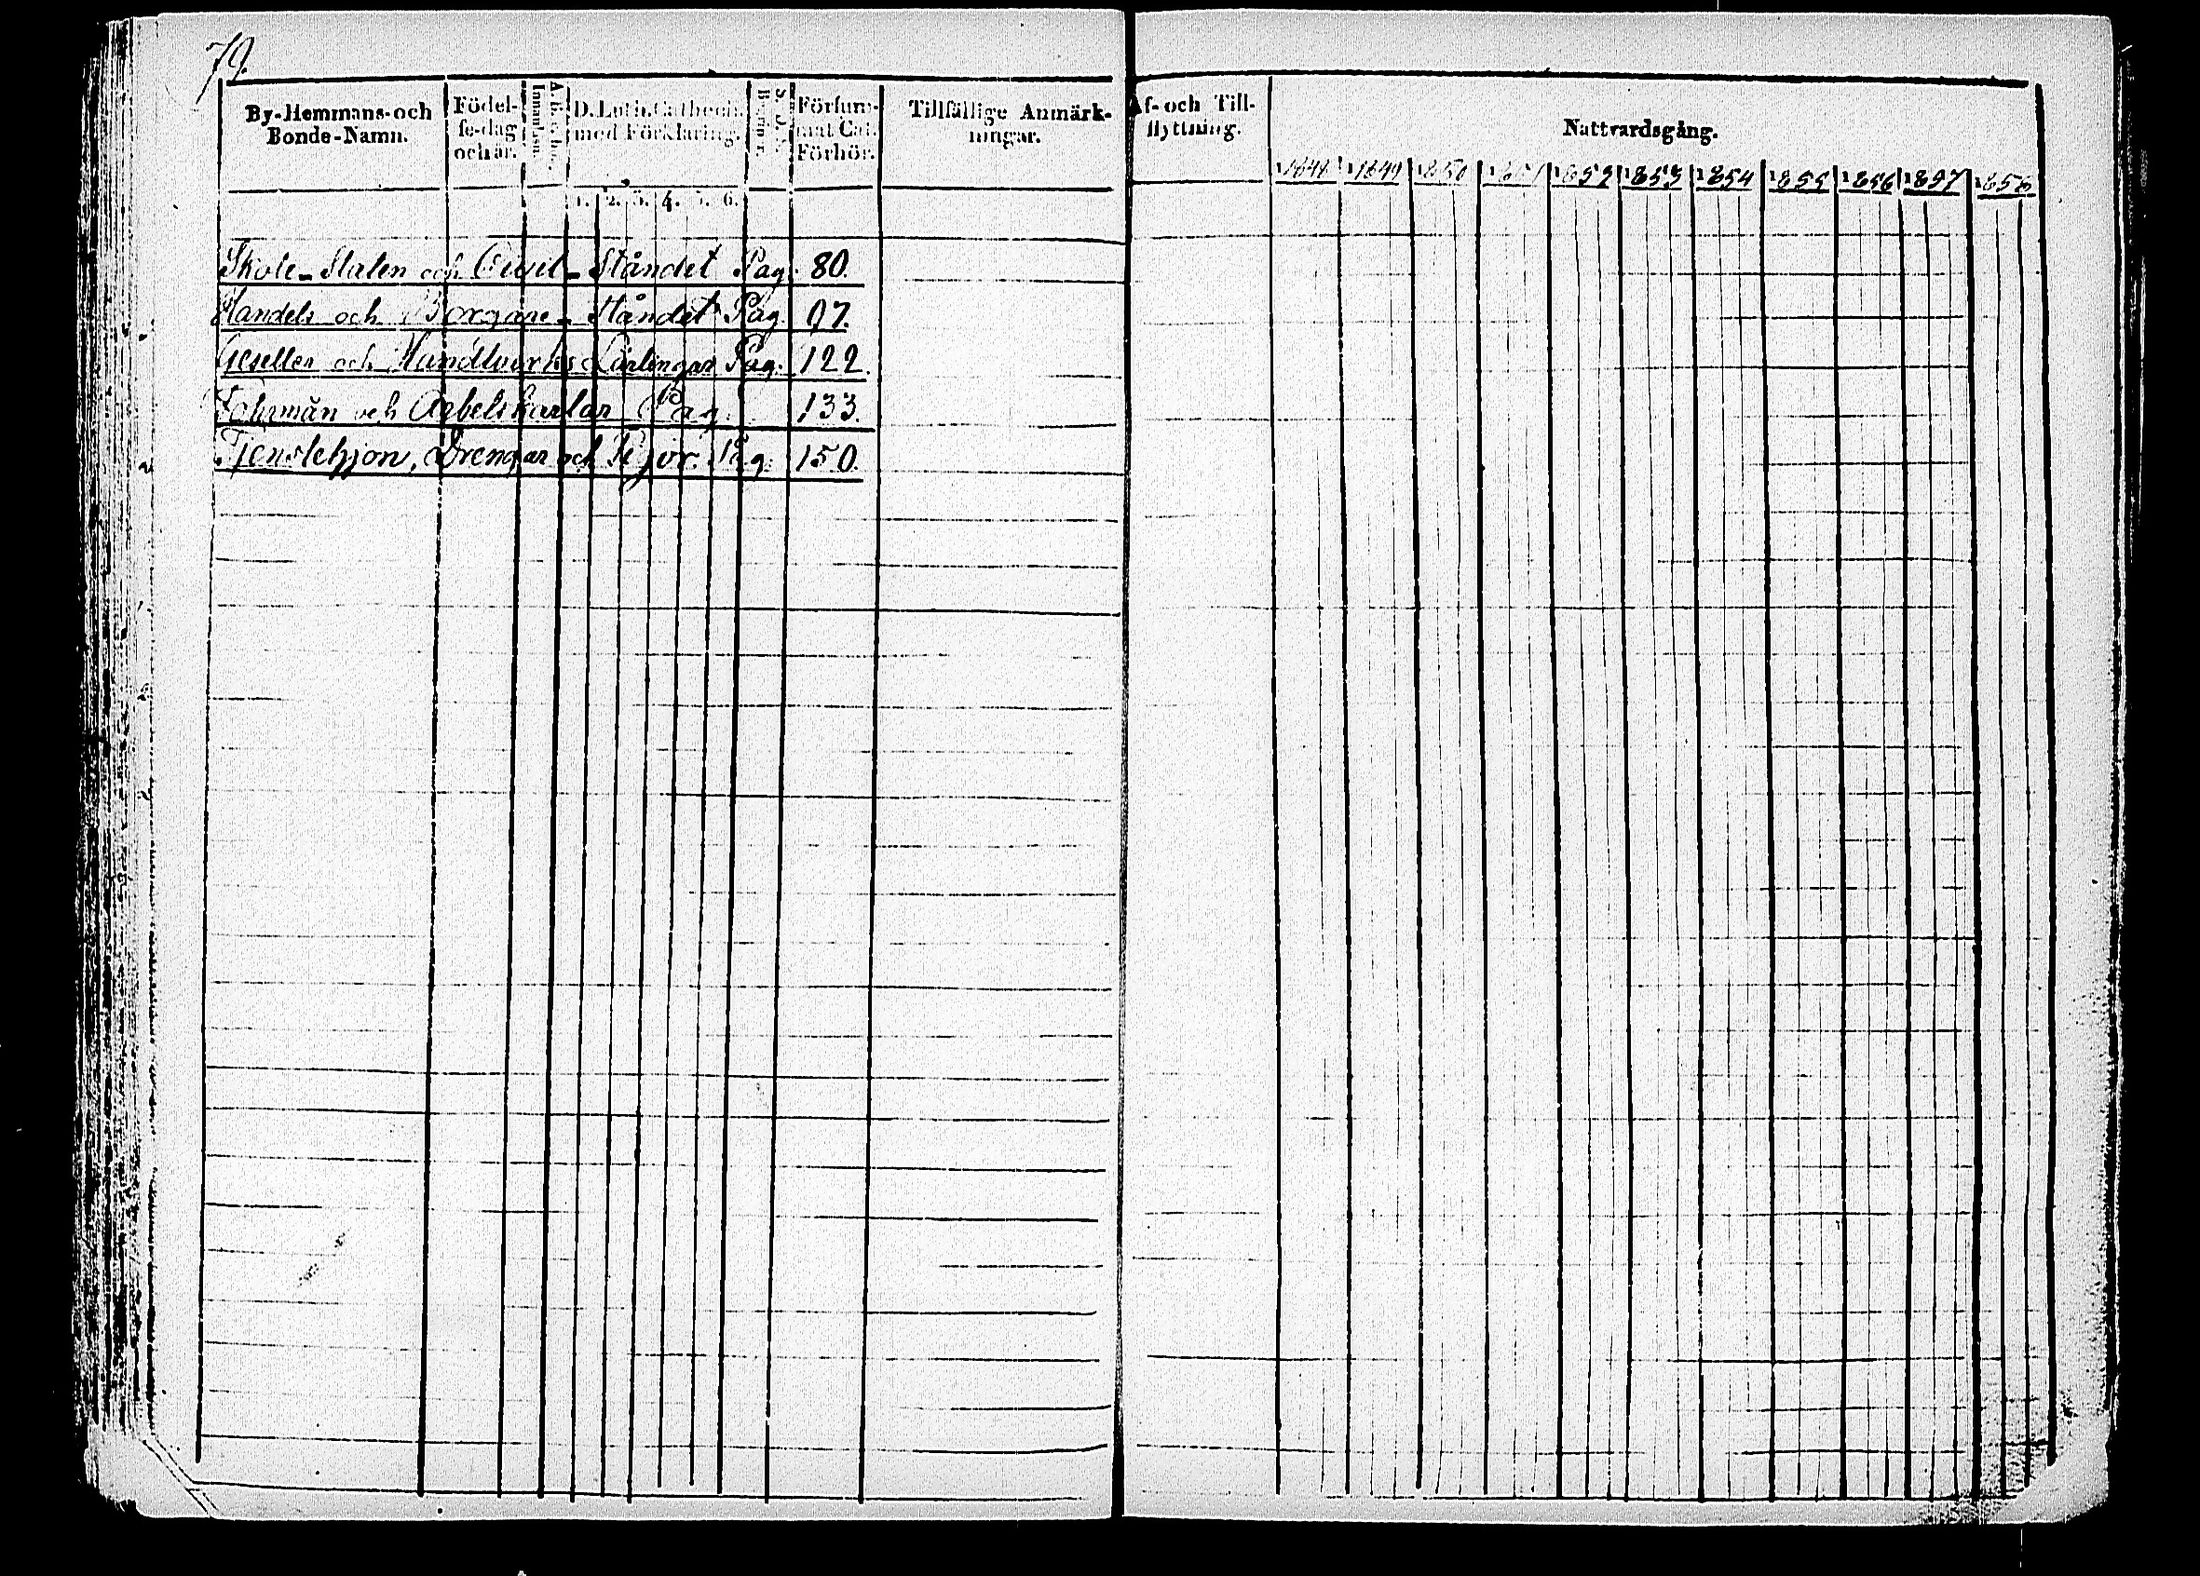 79.
By-Hemmans- och Bonde-Namn.
Födel-
se-dag
och år.
Innanläsn.
D. Luth. Cathech.
med Förklaring.
1. 2. 3. 4. 5. 6.
Försum-
mat Cat.
Förhör.
Tillfällige Anmärk-
ningar.
Af- och Till-
flyttning.
Nattvardsgång.
1848 1849 1850 1851 1852 1853 1854 1855 1856 1857 1858
Skole-Staten och Civil-Ståndet Pag. 80.
Handels och Borgare-Ståndet Pag. 97.
Geseller och Handtverks Lärlingar Pag. 122.
Fohrmän och Arbetskarlar Pag. 133.
Tjenstehjon, Drengar och Pigor. Pag. 150.